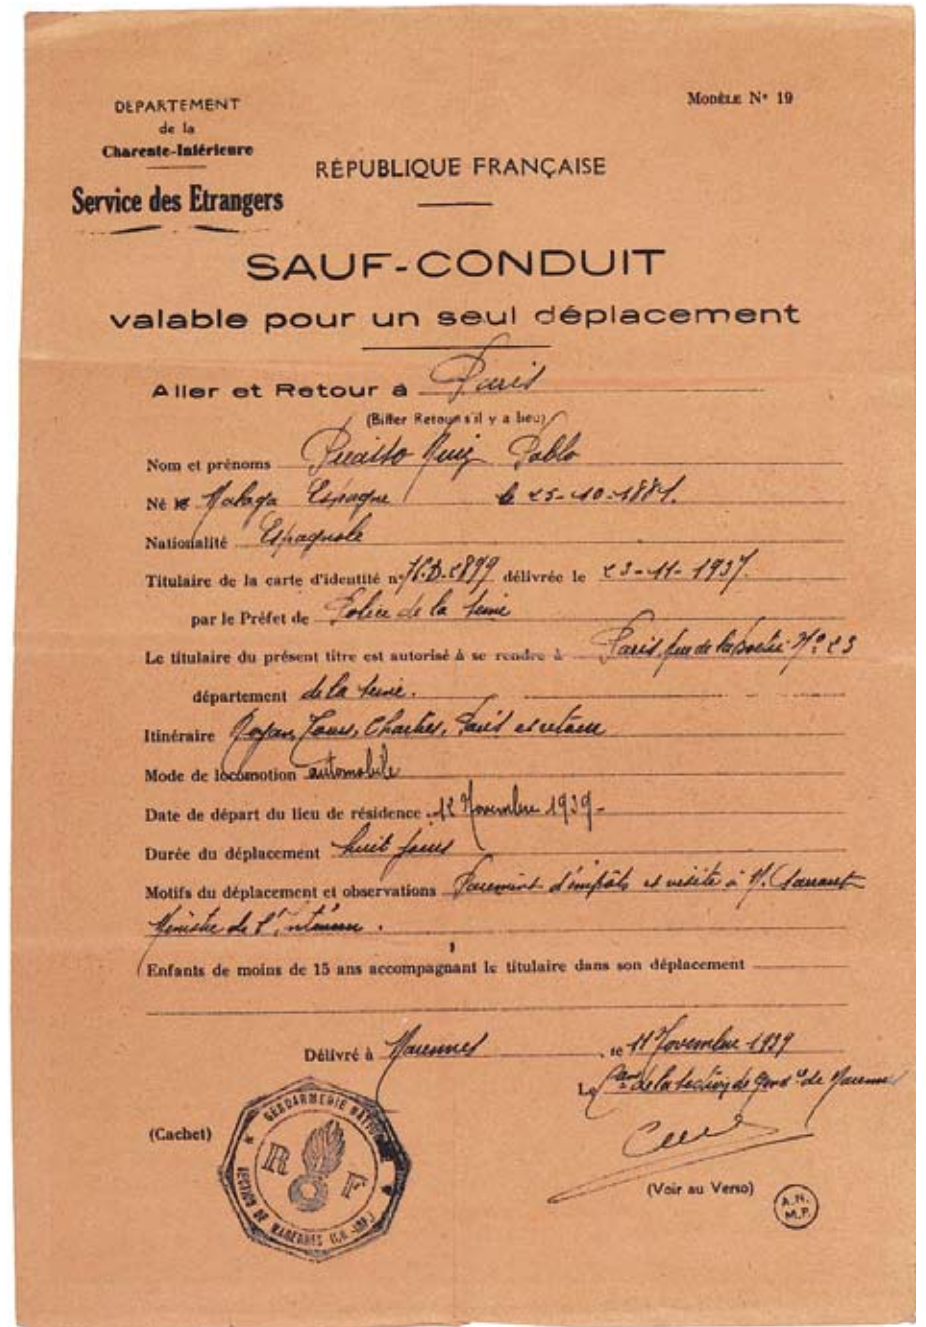 DEPARTEMENT
de la
Charente-Inférieure
Service des Etrangers
MODÈLE N° 19
RÉPUBLIQUE FRANÇAISE
SAUF-CONDUIT
valable pour un seul déplacement
Aller et Retour à Paris
(Biffer Retour s'il y a lieu)
Nom et prénoms Picasso Ruiz Pablo
Né à Malaga Espagne le 25-10-1881.
Nationalité Espagnole
Titulaire de la carte d'identité n° délivrée le 23-11-1937.
par le Préfet de Police de la Seine
Le titulaire du présent titre est autorisé à se rendre à Paris, rue de la Boétie N° 23
département de la Seine.
Itinéraire Royan, Tours, Chartres, Paris et retour
Mode de locomotion automobile
Date de départ du lieu de résidence 12 Novembre 1939-
Durée du déplacement huit jours
Motifs du déplacement et observations Paiement d'impôts et visite à M. Sarraut
Ministre de l'Intérieur.
Enfants de moins de 15 ans accompagnant le titulaire dans son déplacement
Délivré à Marennes, le 11 Novembre 1939
Le de la Section de Gend ie de Marennes
(Cachet)
GENDARMERIE NATIONALE
R F
SECTION DE MARENNES (CH.-INF.)
(Voir au Verso)
A.N.
M.P.